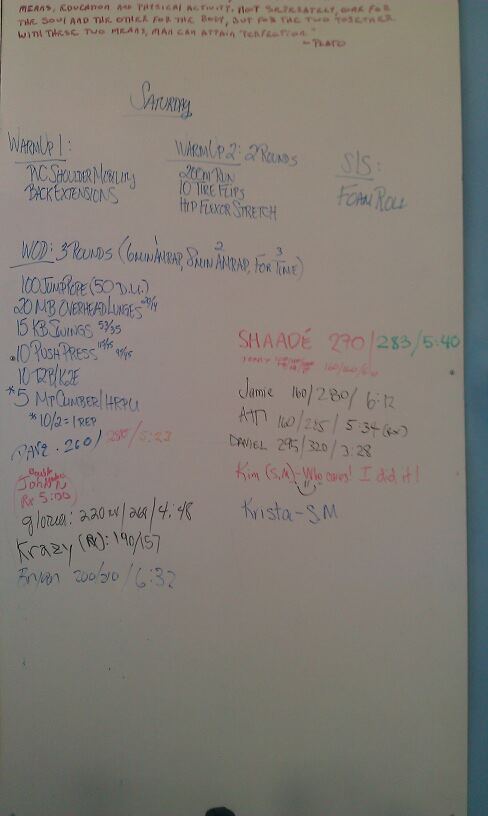 MEANS, EDUCATION AND PHYSICAL ACTIVITY. NOT SEPERATELY, ONE FOR
THE SOUL AND THE OTHER FOR THE BODY, BUT FOR THE TWO TOGETHER
WITH THESE TWO MEANS, MAN CAN ATTAIN "PERFECTION"
~PLATO
SATURDAY
WARMUP 1:
PVC SHOULDER MOBILITY
BACK EXTENSIONS
WARMUP 2: 2 ROUNDS
200m RUN
10 TIRE FLIPS
HIP FLEXOR STRETCH
S/S:
FOAM ROLL
WOD: 3 ROUNDS (6 MIN AMRAP, 8 MIN AMRAP, FOR TIME)
1 2 3
100 JUMP ROPE (50 D.U.)
20 MB OVERHEAD LUNGES 20/14
15 KB SWINGS 53/35
10 PUSH PRESS
10 T2B/K2E
*5 MT CLIMBER/HRPU
*10/2 = 1 REP
DAVE: 260/285/5:23
JOHN
RX 5:00
gloria: 220 /4:48
Krazy (RX): 190/157
Bryan 200/210/6:32
SHAADÉ 270/283/5:40
Jamie 160/280/6:12
160/285/5:34 (RX)
DANIEL 295/320/3:28
Kim (S,M) - Who cares! I did it!
Krista - S,M